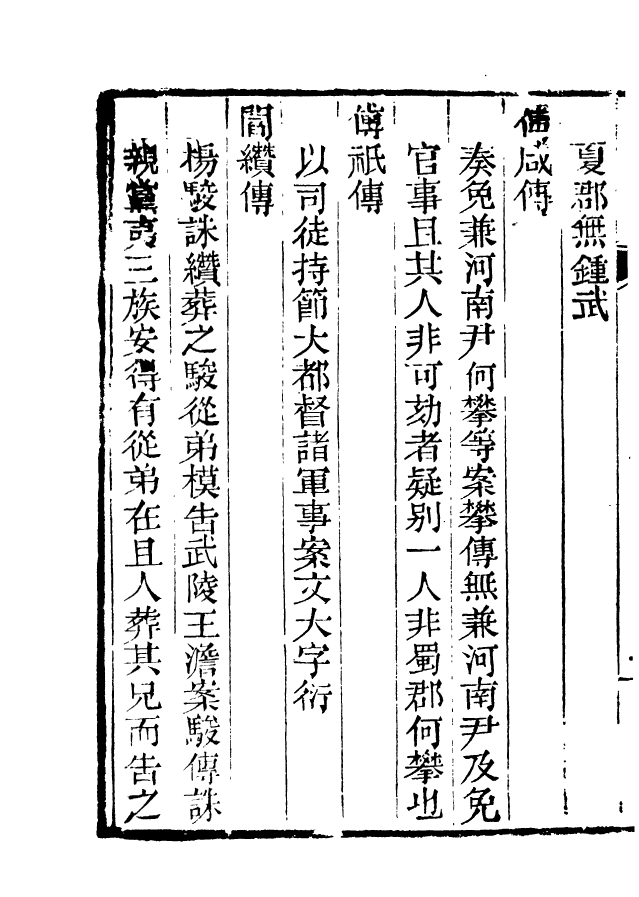 夏郡無鍾武
傅咸傳
奏免兼河南尹何攀等案攀傳無兼河南尹及免
官事且其人非可劾者疑别一人非蜀郡何攀也
傅祗傳
以司徒持節大都督諸軍事案文大字衍
閻纘傳
楊駿誅纘葬之駿從弟模告武陵王澹案駿傳誅
親黨夷三族安得有從弟在且人葬其兄而告之